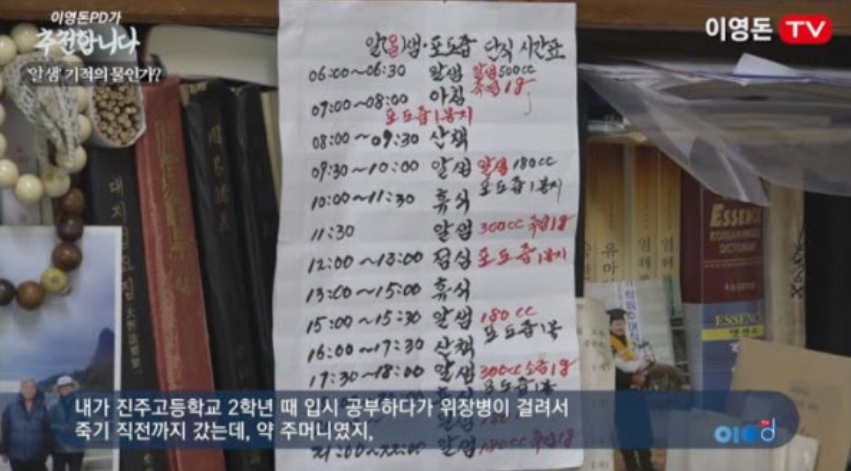 이영돈PD가
추전합니다
'알샘' 기적의 물인가?
이영돈 TV
알(올)샘·포도즙 단식 시간표
06:00~06:30 알샘 알샘500cc
07:00~08:00 아침
포도즙1봉지
08:00~09:30 산책
09:30~10:00 알샘 알샘 180cc
포도즙1봉지
10:00~11:30 휴식
11:30 알샘 300cc
12:00~13:00 점심 포도즙1봉지
13:00~15:00 휴식
15:00~15:30 알샘 180cc
포도즙1봉
16:00~17:30 산책
17:30~18:00 알샘 300cc 소금1알
21:00~22:00 알샘 180cc
ESSENCE
KOREAN-ENGLISH
DICTIONARY
ESSENCE
내가 진주고등학교 2학년 때 입시 공부하다가 위장병이 걸려서
죽기 직전까지 갔는데, 약 주머니였지,